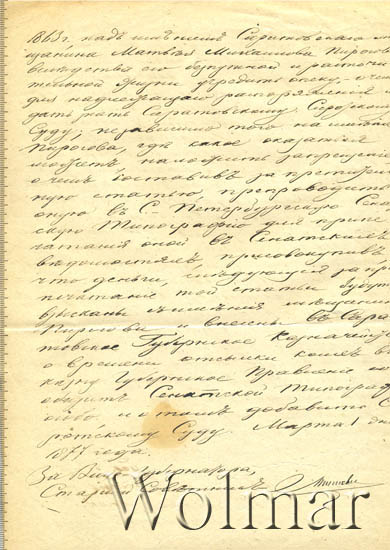 1863 г. надъ имѣніемъ Саратовскаго мѣ
щанина Матвѣя Михайлова Пирогов
вслѣдствіе его безпутной и расточи
тельной жизни учредить опеку, о чемъ
для надлежащаго распоряженія и
дать знать Саратовскому
Суду, независимо того на имѣніе
Пирогова, гдѣ какое окажется
наложить запрещеніе
о чемъ составивъ запретитель
ную статью, препроводить
оную въ С.-Петербургскую Сенат
скую Типографію для припе
чатанія оной въ Сенатскихъ
вѣдомостяхъ присовокупивъ
что деньги, слѣдующія за при
печатаніе той статьи будутъ
взысканы съ имѣнія мѣщанина
Пирогова и внесены въ Сара
товское Губернское Казначейст
о времени отсылки коихъ въ
казну Губернское Правленіе
Сенатской Типограф
особо и о томъ добавить С
ратовскому Суду. Марта 1 дня
года.
За Вице Губернатора,
Старшій Совѣтникъ
Wolmar